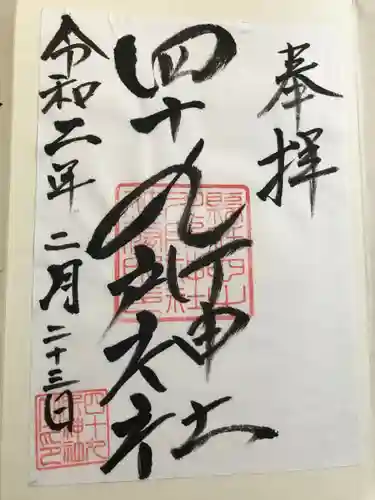 奉拝
四十九所神社
令和二年二月二十三日
四十九
所神社